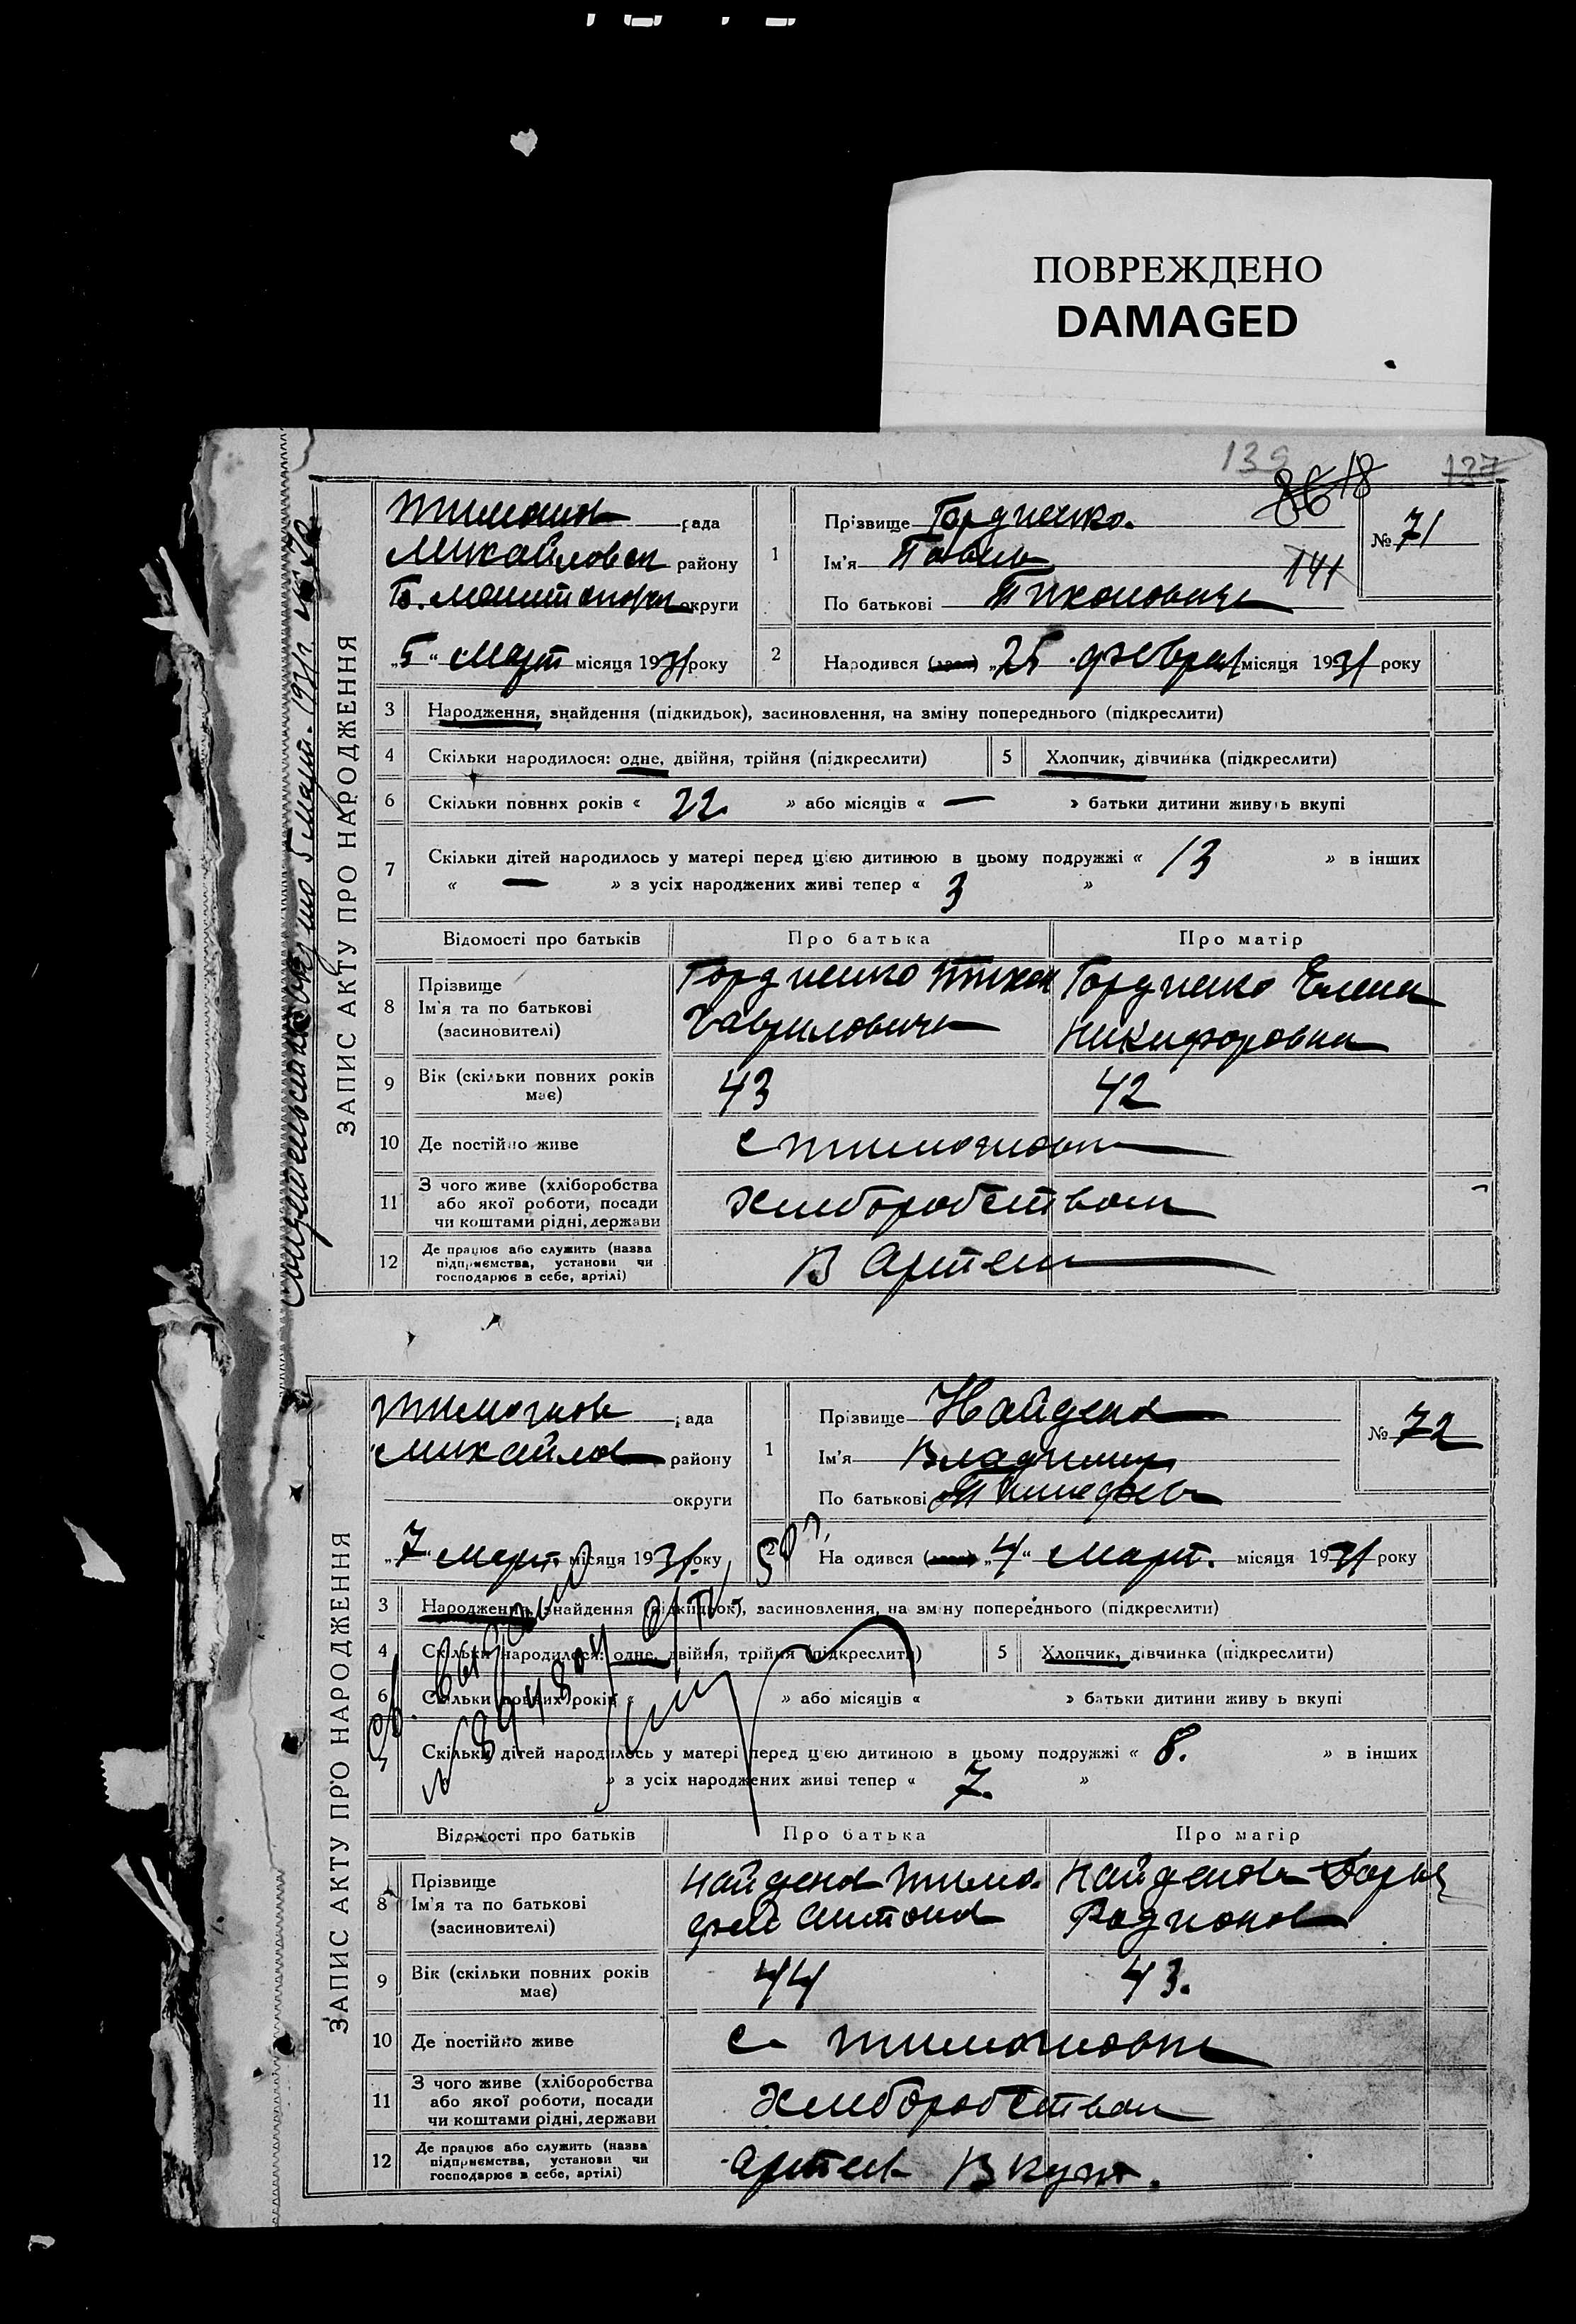 ПОВРЕЖДЕНО
DAMAGED
139
137
86 18
141
ЗАПИС АКТУ ПРО НАРОДЖЕННЯ
рада
Михайловск району
округи
„5“ Март місяця 1931 року
1
Прізвище Гордиенко.
Ім'я Павел
По батькові Тихонович
№ 71
2 Народився (лась) „25 февраля місяця 1931 року
3 Народження, знайдення (підкидьок), засиновлення, на зміну попереднього (підкреслити)
4 Скільки народилося: одне, двійня, трійня (підкреслити) 5 Хлопчик, дівчинка (підкреслити)
6 Скільки повних років « 22 » або місяців « — » батьки дитини живуть вкупі
7 Скільки дітей народилось у матері перед цією дитиною в цьому подружжі « 13 » в інших
« — » з усіх народжених живі тепер « 3 »
Відомості про батьків Про батька Про матір
8 Прізвище
Ім'я та по батькові
(засновителі)
Гордиенко Тихон
Гаврилович
Гордиенко Елена
Никифоровна
9 Вік (скільки повних років має) 43 42
10 Де постійно живе с Тимошовка
11 З чого живе (хліборобства
або якої роботи, посади
чи коштами рідні, держави
Хлиборобством
12 Де працює або служить (назва
підприємства, установи чи
господарює в себе, артілі)
В Артели
ЗАПИС АКТУ ПРО НАРОДЖЕННЯ
рада
Михайло району
округи
„7“ Март. місяця 1931. року
1
Прізвище Найденов
Ім'я Владимир
По батькові Тимофеев
№ 72
2 Народився (лась) „4“ Март. місяця 1931 року
3 Народження, знайдення (підкидьок), засиновлення, на зміну попереднього (підкреслити)
4 Скільки народилося: одне, двійня, трійня (підкреслити) 5 Хлопчик, дівчинка (підкреслити)
6 Скільки повних років « » або місяців « » батьки дитини живуть вкупі
7 Скільки дітей народилось у матері перед цією дитиною в цьому подружжі « 8. » в інших
» з усіх народжених живі тепер « 7. »
Відомості про батьків Про батька Про матір
8 Прізвище
Ім'я та по батькові
(засиновителі)
Найденов Тимо
фей Антонов
Найденова Дарья
Родионов
9 Вік (скільки повних років має) 44 43.
10 Де постійно живе с. Тимошовка
11 З чого живе (хліборобства
або якої роботи, посади
чи коштами рідні, держави
Хлиборобством
12 Де працює або служить (назва
підприємства, установи чи
господарює в себе, артілі)